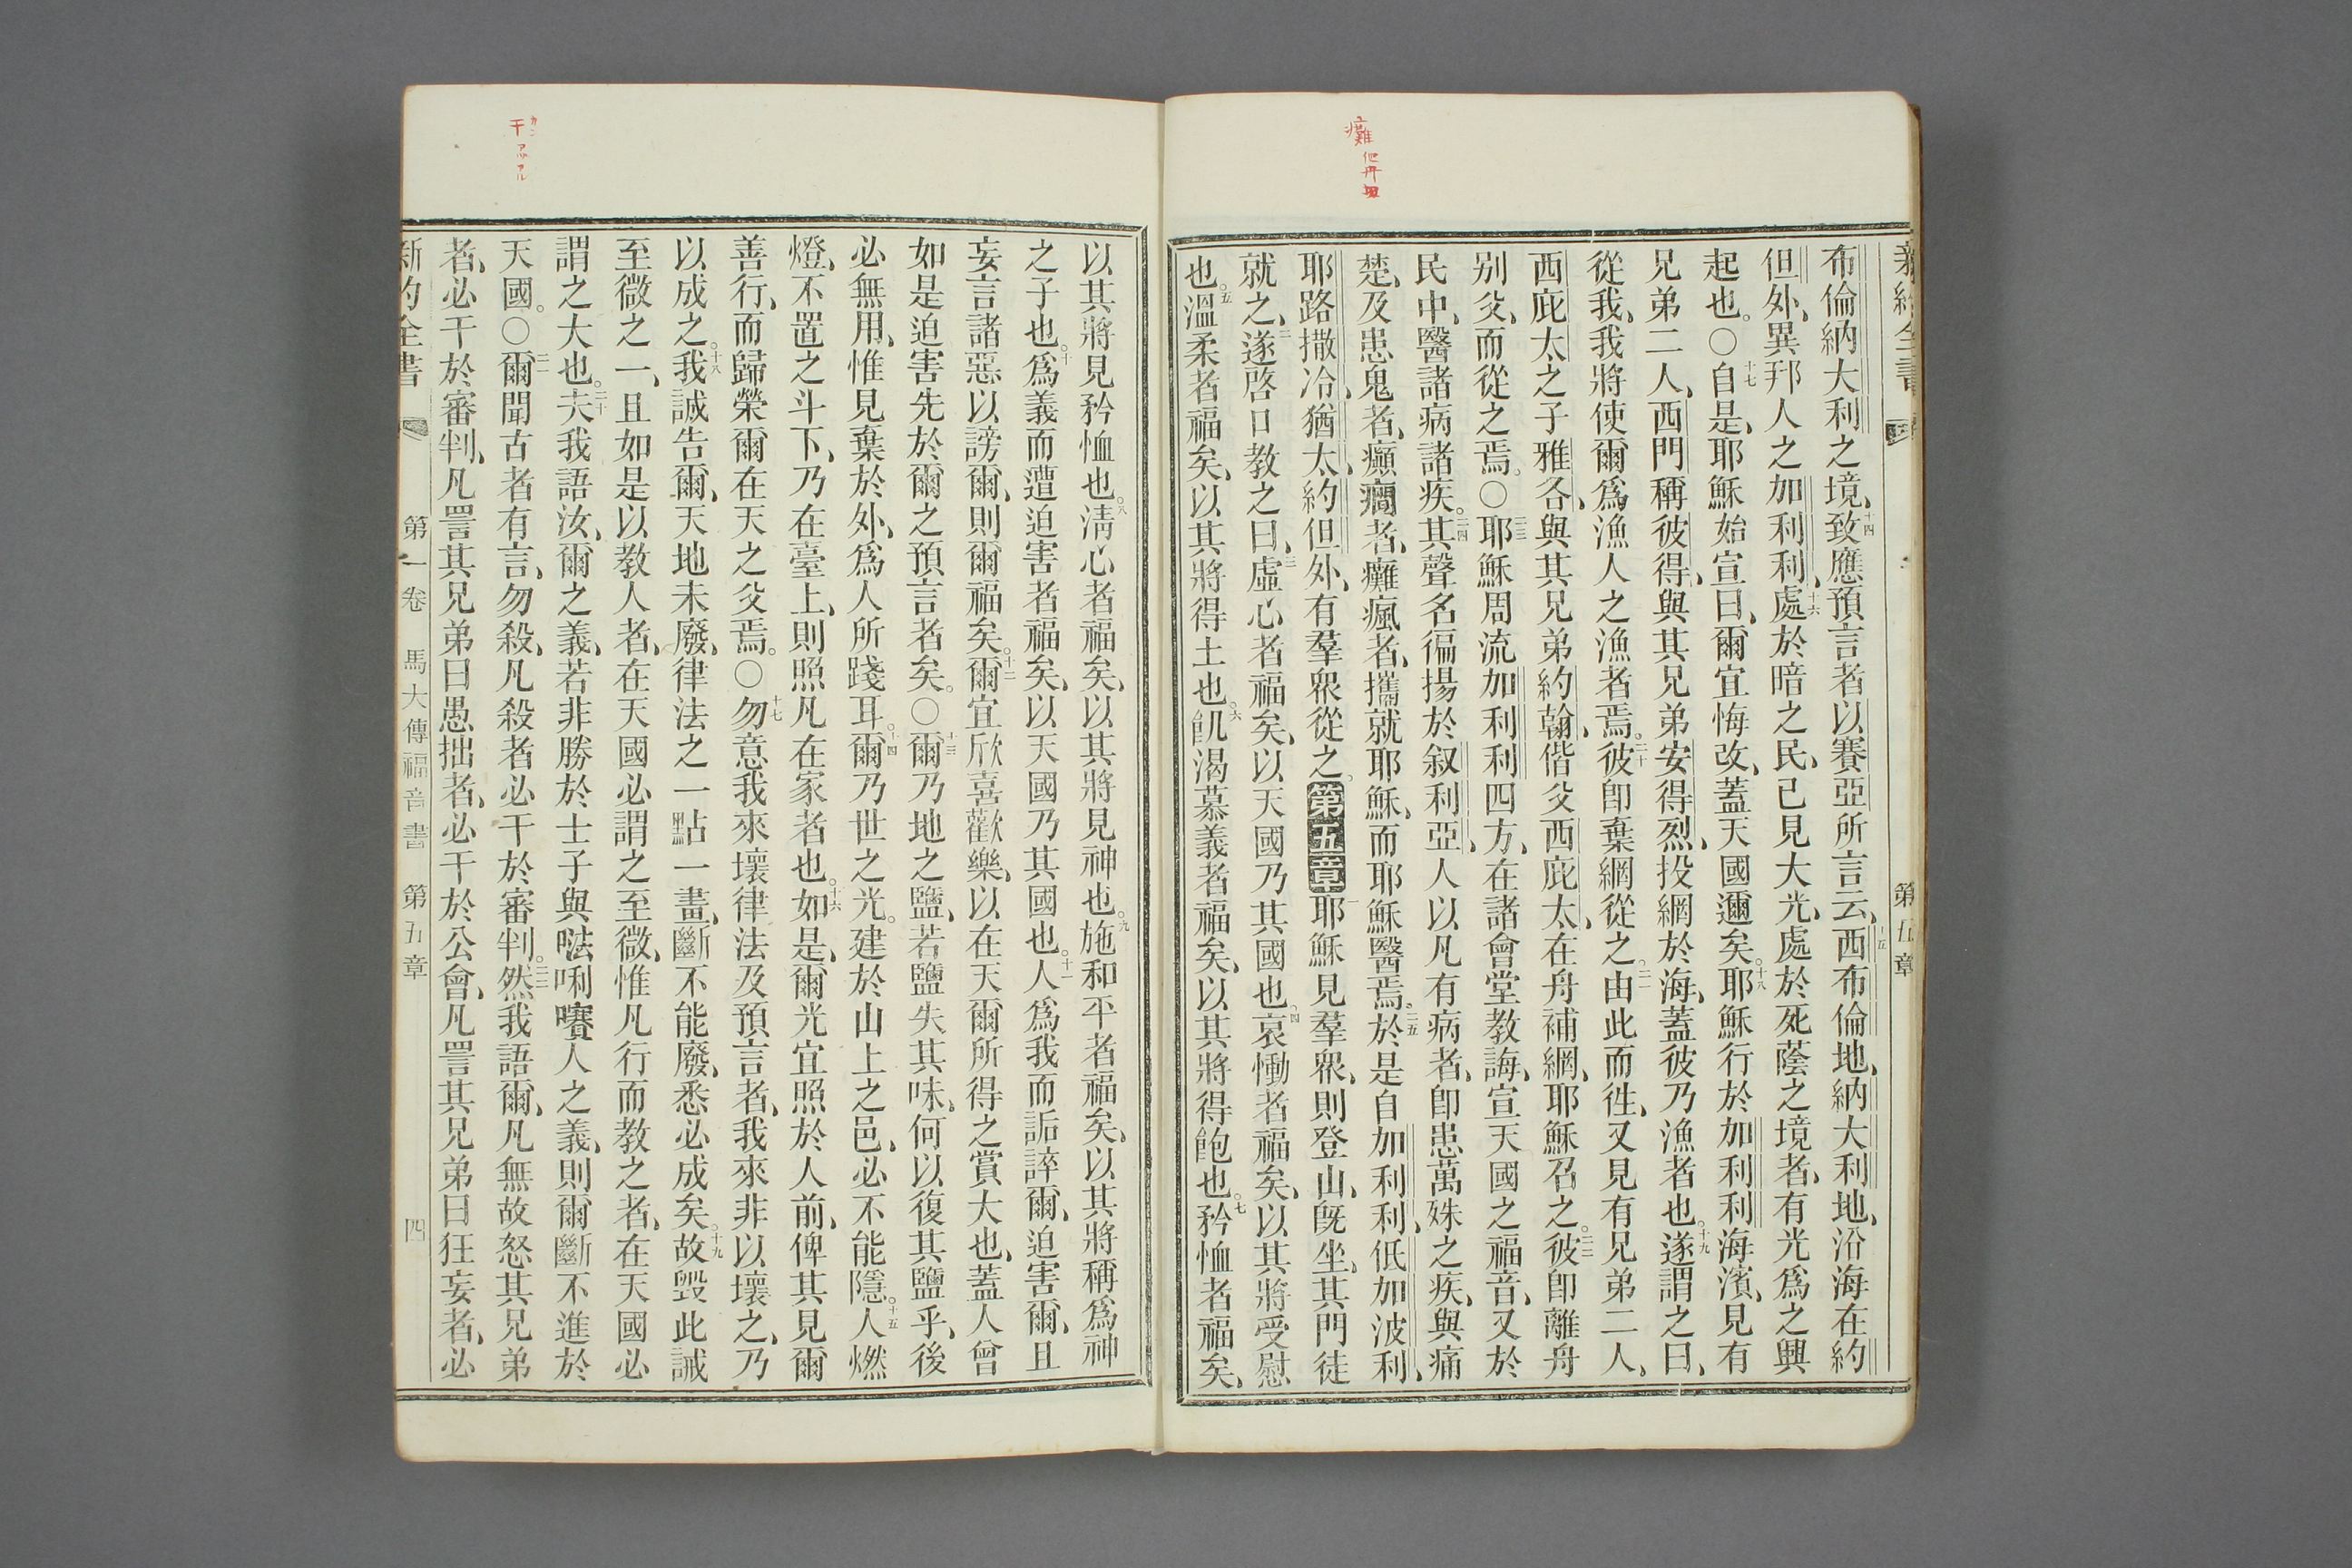 癱 他丹切
新約全書
第五章
布倫納大利之境、十四致應預言者以賽亞所言云、十五西布倫地、納大利地、沿海在約
但外、異邦人之加利利、十六處於暗之民、已見大光、處於死蔭之境者、有光爲之興
起也。〇十七自是、耶穌始宣曰、爾宜悔改、蓋天國邇矣。十八耶穌行於加利利海濱、見有
兄弟二人、西門稱彼得、與其兄弟安得烈、投網於海、蓋彼乃漁者也。十九遂謂之曰、
從我、我將使爾爲漁人之漁者焉。二十彼卽棄網從之。二一由此而徃、又見有兄弟二人、
西庇太之子雅各、與其兄弟約翰、偕父西庇太、在舟補網、耶穌召之。二二彼卽離舟
別父、而從之焉。〇二三耶穌周流加利利四方、在諸會堂教誨、宣天國之福音、又於
民中、醫諸病諸疾。二四其聲名徧揚於叙利亞、人以凡有病者、卽患萬殊之疾、與痛
楚、及患鬼者、癲癇者、癱瘋者、攜就耶穌、而耶穌醫焉。二五於是自加利利、低加波利、
耶路撒冷、猶太、約但外、有羣衆從之。第五章一耶穌見羣衆、則登山、旣坐、其門徒
就之、二遂啓口教之曰、三虛心者福矣、以天國乃其國也。四哀慟者福矣、以其將受慰
也。五溫柔者福矣、以其將得土也。六飢渴慕義者福矣、以其將得飽也。七矜恤者福矣、
干 カン アヅカル
以其將見矜恤也。八淸心者福矣、以其將見神也。九施和平者福矣、以其將稱爲神
之子也。十爲義而遭迫害者福矣、以天國乃其國也。十一人爲我而詬誶爾、迫害爾、且
妄言諸惡以謗爾、則爾福矣。十二爾宜欣喜歡樂、以在天爾所得之賞大也、蓋人曾
如是迫害先於爾之預言者矣。〇十三爾乃地之鹽、若鹽失其味、何以復其鹽乎、後
必無用、惟見棄於外、爲人所踐耳。十四爾乃世之光。建於山上之邑、必不能隱。十五人燃
燈、不置之斗下、乃在臺上、則照凡在家者也。十六如是、爾光宜照於人前、俾其見爾
善行、而歸榮爾在天之父焉。〇十七勿意我來壞律法及預言者、我來非以壞之、乃
以成之。十八我誠告爾、天地未廢、律法之一點一畫、斷不能廢、悉必成矣。十九故毀此誡
至微之一、且如是以教人者、在天國必謂之至微、惟凡行而教之者、在天國必
謂之大也。二十夫我語汝、爾之義、若非勝於士子與𠵽唎㘔人之義、則爾斷不進於
天國。〇二一爾聞古者有言、勿殺、凡殺者必干於審判。二二然我語爾、凡無故怒其兄弟
者、必干於審判、凡詈其兄弟曰愚拙者、必干於公會、凡詈其兄弟曰狂妄者、必
新約全書 第一卷 馬太傳福音書 第五章 四